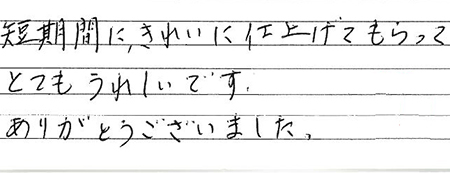 短期間に、きれいに仕上げてもらって
とてもうれしいです.
ありがとうございました。